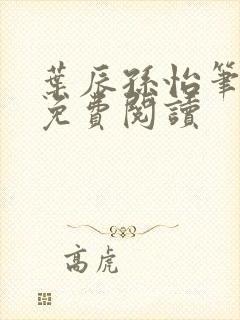 葉辰孫怡筆
免費閱讀
高虎